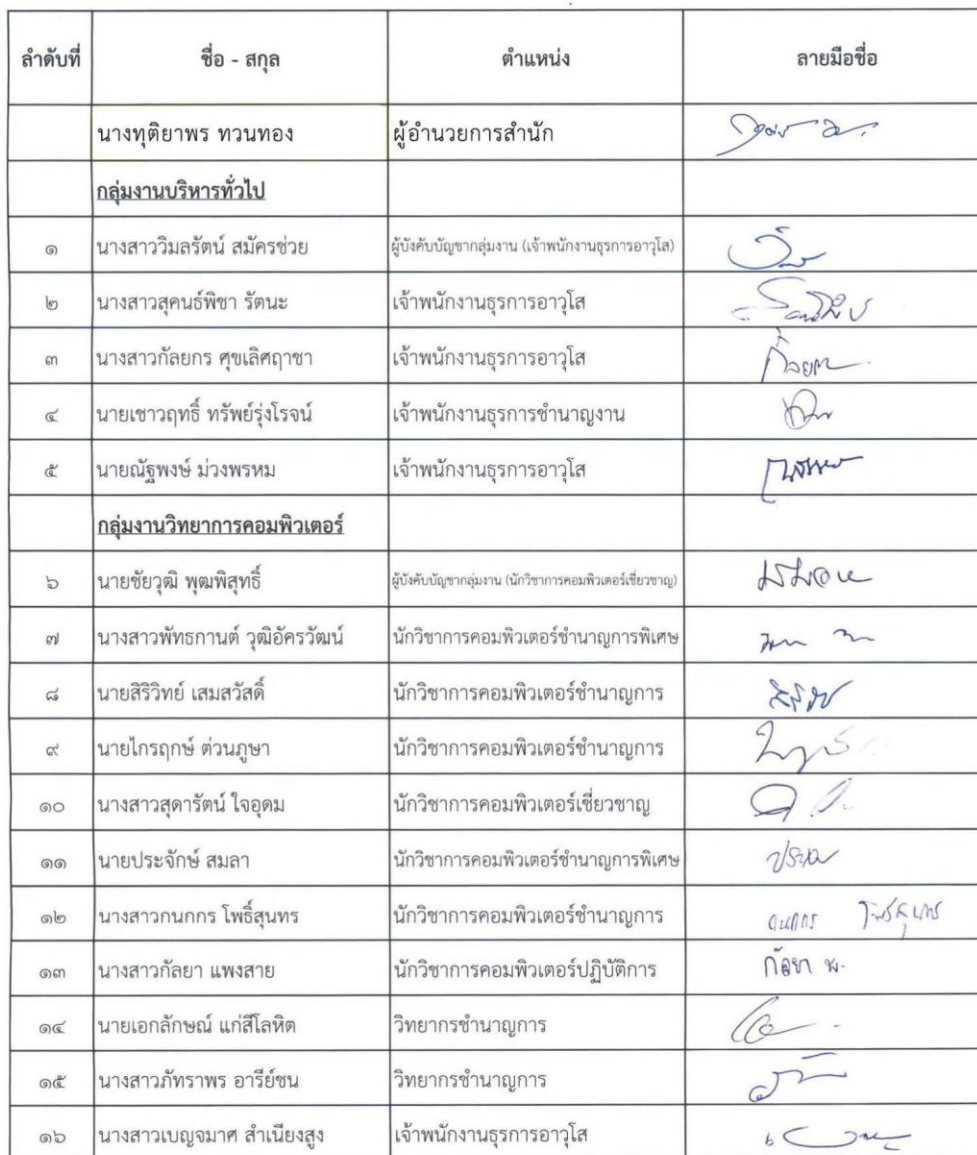 ลำดับที่ ชื่อ - สกุล ตำแหน่ง ลายมือชื่อ
นางทุติยาพร ทวนทอง ผู้อำนวยการสำนัก
กลุ่มงานบริหารทั่วไป
๑ นางสาววิมลรัตน์ สมัครช่วย ผู้บังคับบัญชากลุ่มงาน (เจ้าพนักงานธุรการอาวุโส)
๒ นางสาวสุคนธ์พิชา รัตนะ เจ้าพนักงานธุรการอาวุโส
๓ นางสาวกัลยกร ศุขเลิศฤาชา เจ้าพนักงานธุรการอาวุโส
๔ นายเชาวฤทธิ์ ทรัพย์รุ่งโรจน์ เจ้าพนักงานธุรการชำนาญงาน
๕ นายณัฐพงษ์ ม่วงพรหม เจ้าพนักงานธุรการอาวุโส
กลุ่มงานวิทยาการคอมพิวเตอร์
๖ นายชัยวุฒิ พุฒพิสุทธิ์ ผู้บังคับบัญชากลุ่มงาน (นักวิชาการคอมพิวเตอร์เชี่ยวชาญ)
๗ นางสาวพัทธกานต์ วุฒิอัครวัฒน์ นักวิชาการคอมพิวเตอร์ชำนาญการพิเศษ
๘ นายสิริวิทย์ เสมสวัสดิ์ นักวิชาการคอมพิวเตอร์ชำนาญการ
๙ นายไกรฤกษ์ ต่วนภูษา นักวิชาการคอมพิวเตอร์ชำนาญการ
๑๐ นางสาวสุดารัตน์ ใจอุดม นักวิชาการคอมพิวเตอร์เชี่ยวชาญ
๑๑ นายประจักษ์ สมลา นักวิชาการคอมพิวเตอร์ชำนาญการพิเศษ
๑๒ นางสาวกนกกร โพธิ์สุนทร นักวิชาการคอมพิวเตอร์ชำนาญการ กนกกร โพธิ์สุนทร
๑๓ นางสาวกัลยา แพงสาย นักวิชาการคอมพิวเตอร์ปฏิบัติการ กัลยา พ.
๑๔ นายเอกลักษณ์ แก่สีโลหิต วิทยากรชำนาญการ
๑๕ นางสาวภัทราพร อารีย์ชน วิทยากรชำนาญการ
๑๖ นางสาวเบญจมาศ สำเนียงสูง เจ้าพนักงานธุรการอาวุโส